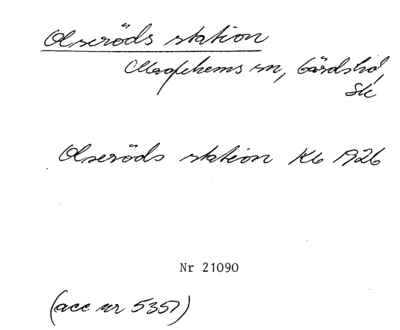 Olseröds station
Maglehems sn, Gärds hd,
Sk
Olseröds station Kb 1926
Nr 21090
(acc nr 5357)